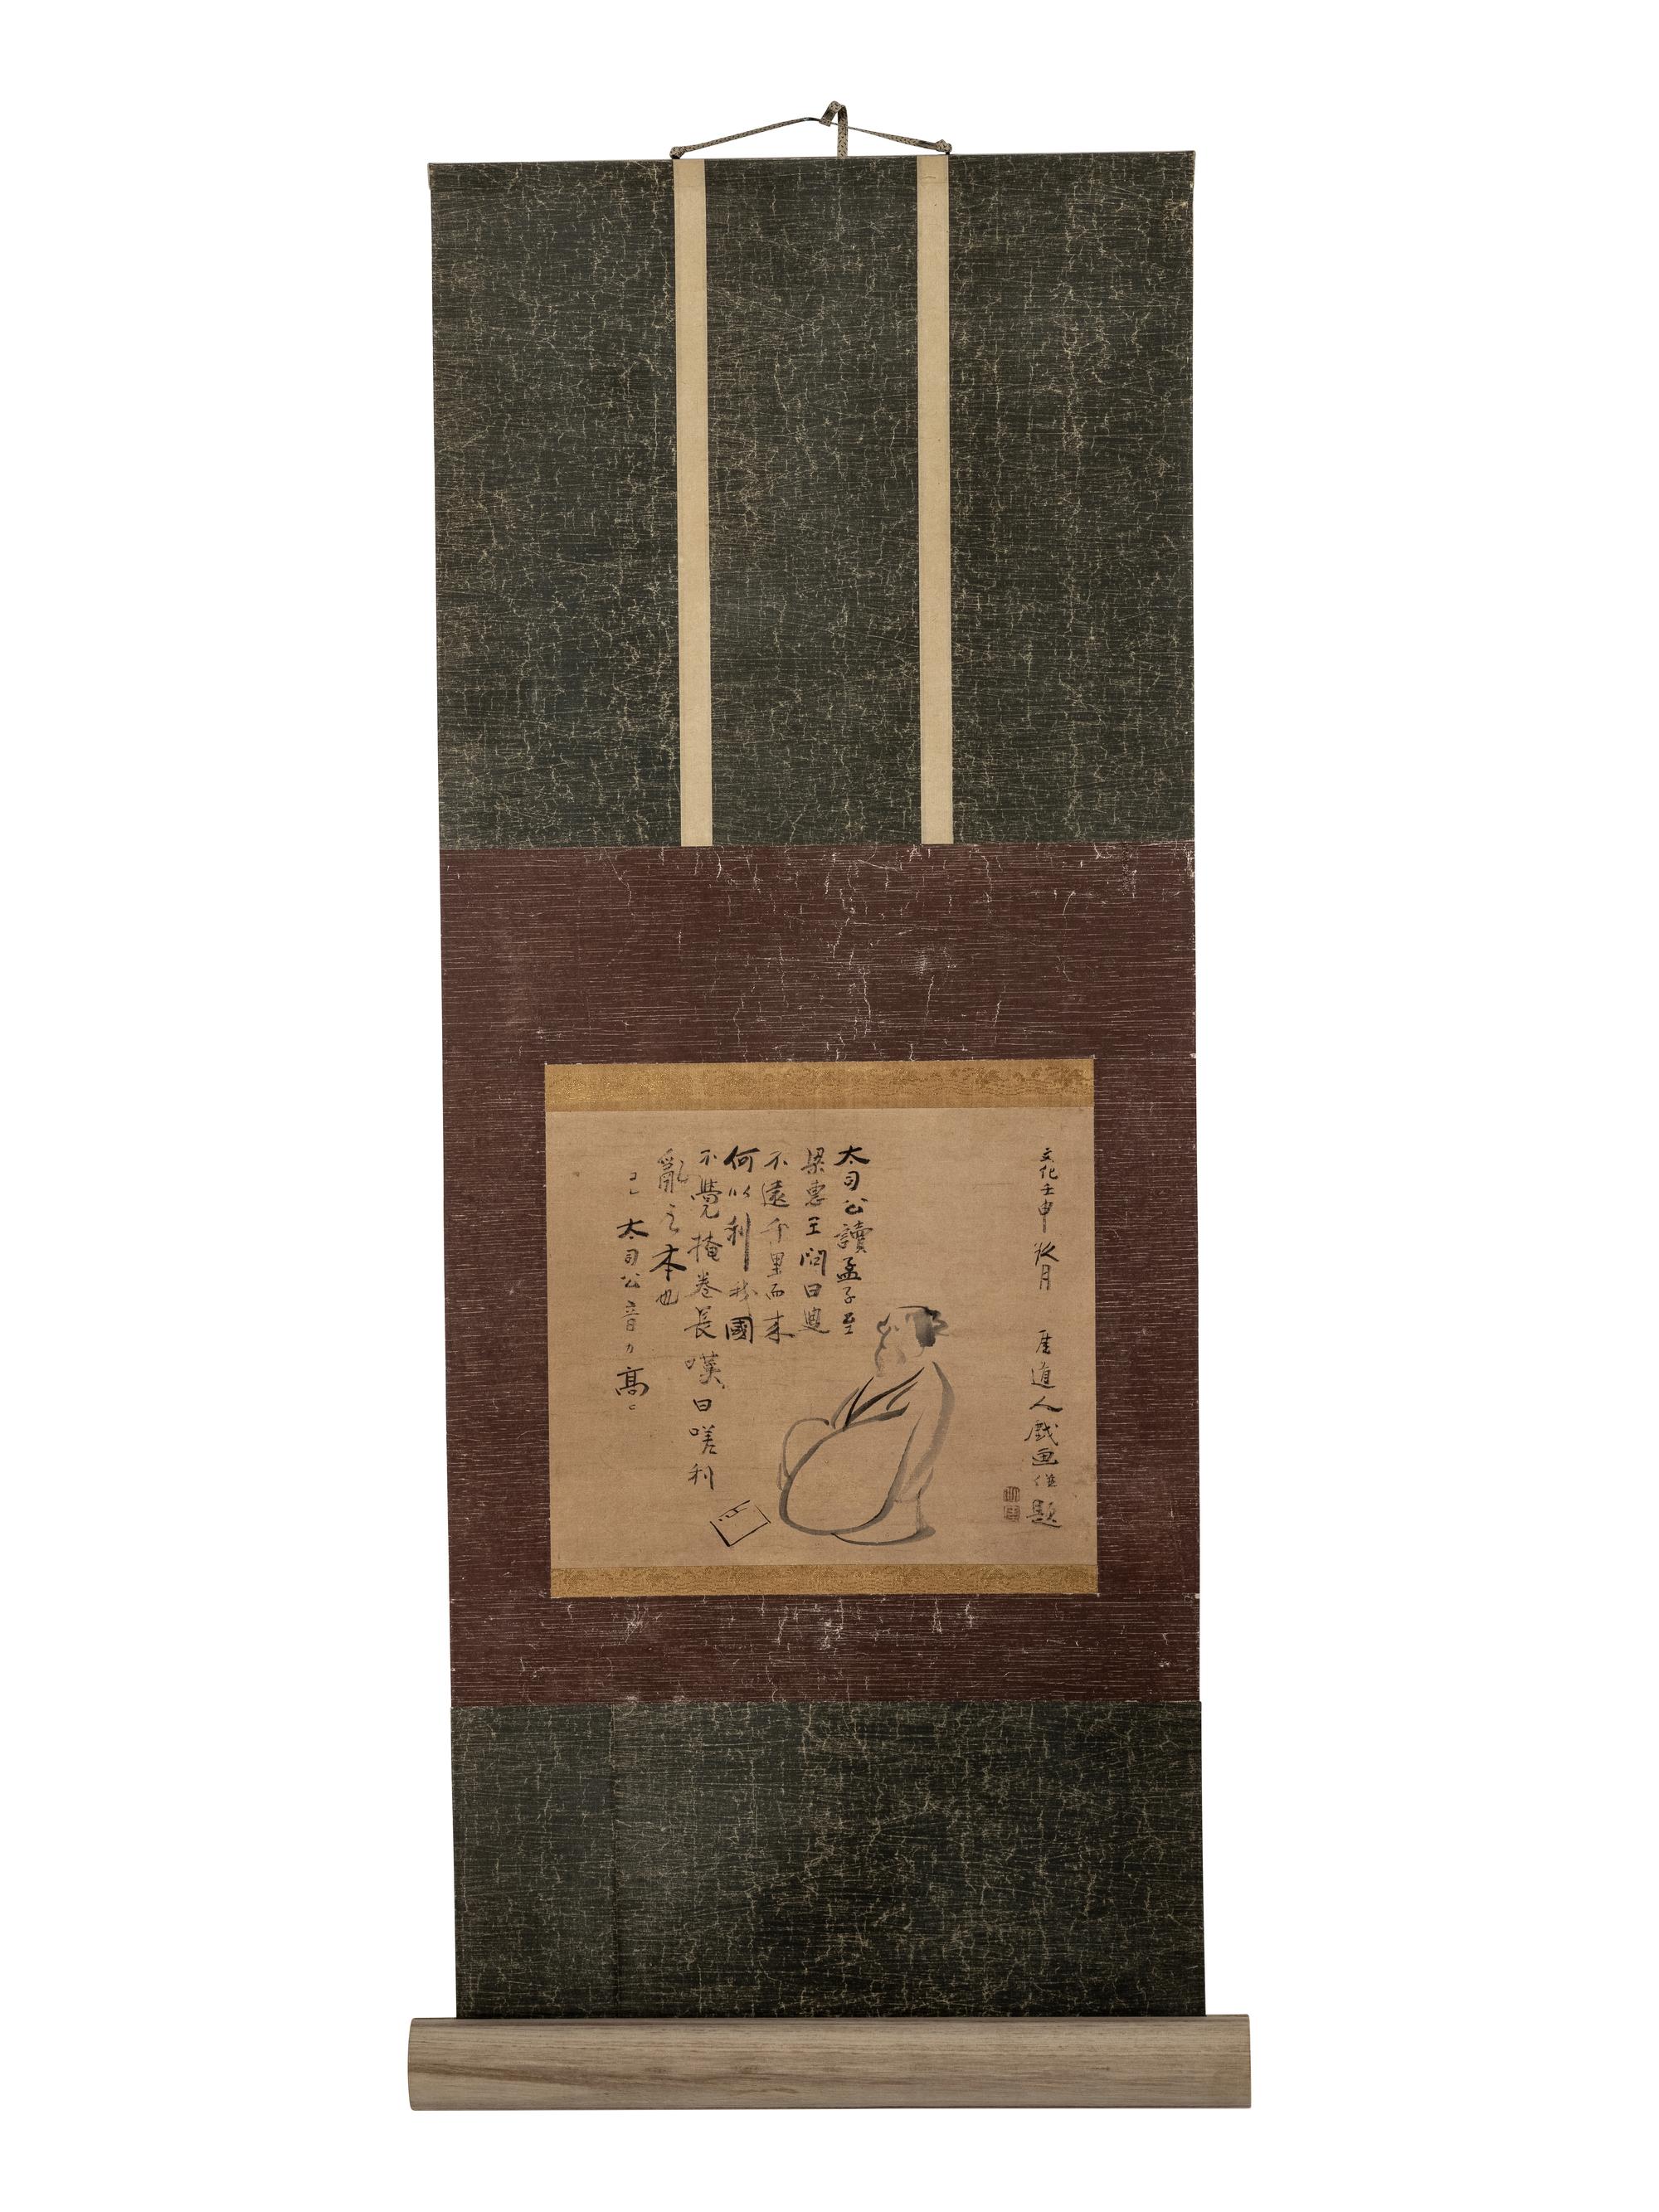 文化壬申 秋月 道人戯画併題
太司公讀孟子至
梁惠王問曰叟
不遠千里而来
何以利我國
不覺掩巻長嘆曰嗟利
亂之本也
太司公音カ高